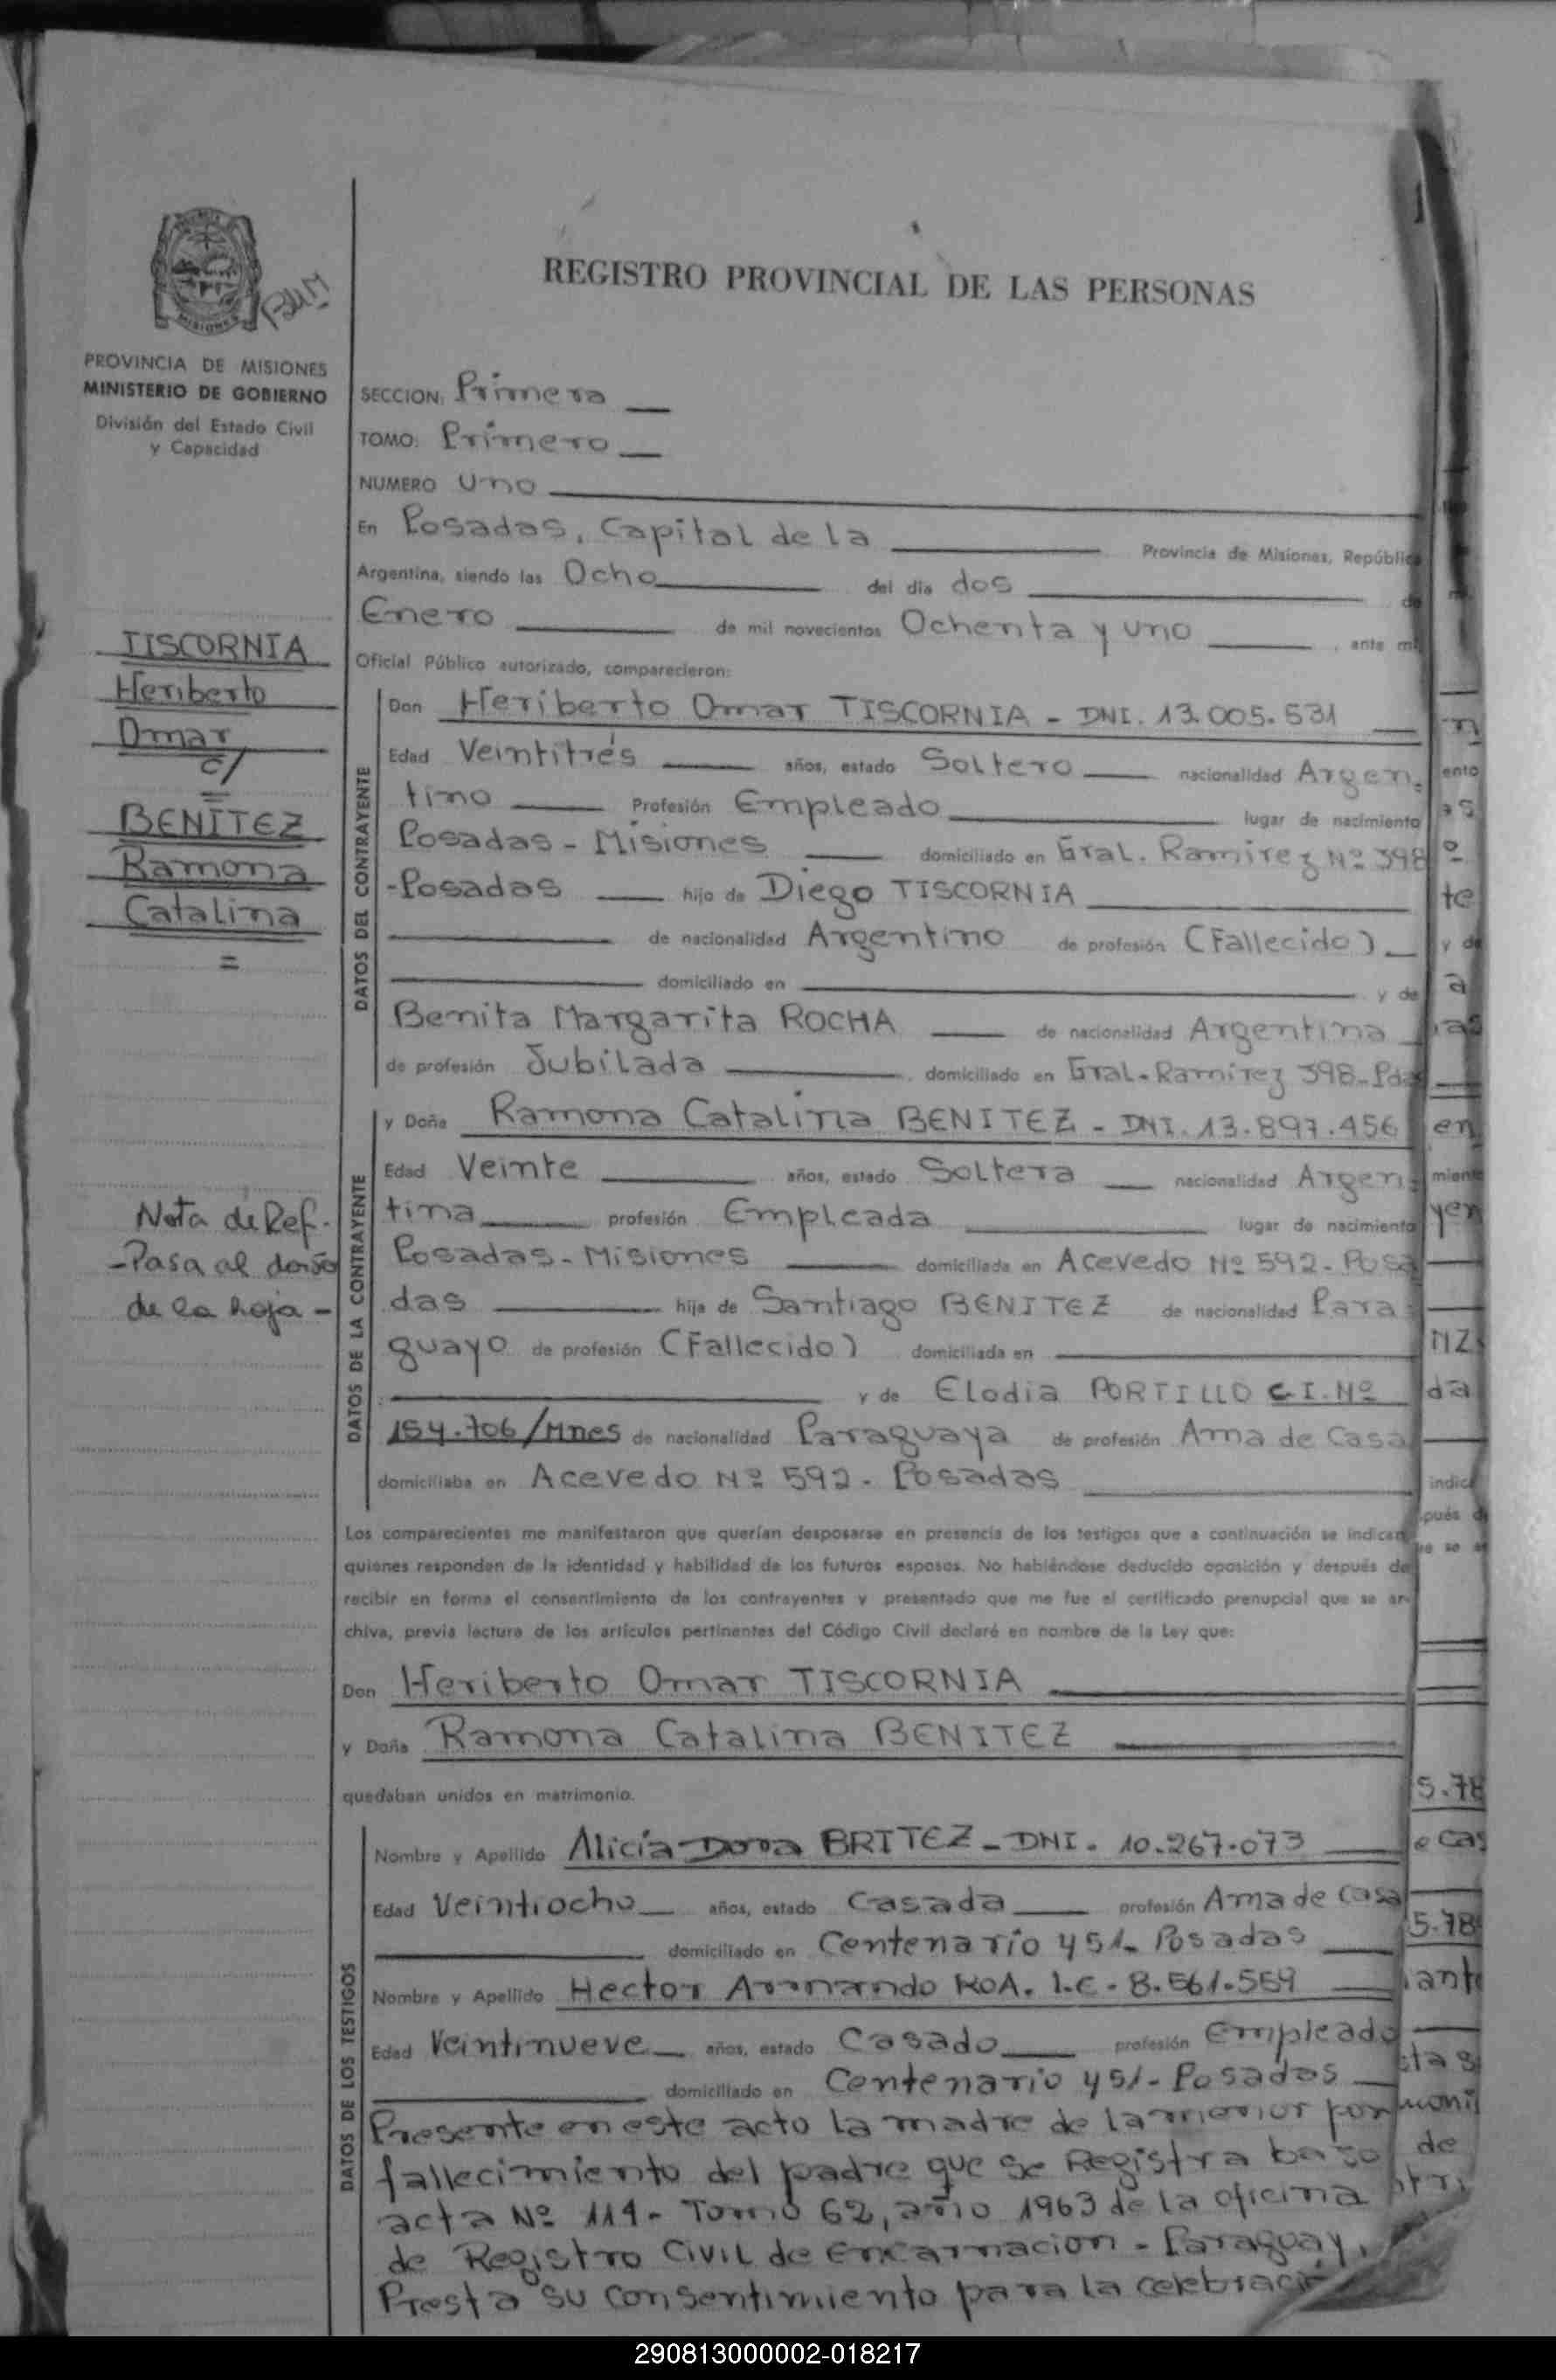 REGISTRO PROVINCIAL DE LAS PERSONAS
MISIONES
PROVINCIA DE MISIONES
MINISTERIO DE GOBIERNO
División del Estado Civil
y Capacidad
TISCORNIA
Heriberto
Omar
c/
=
BENÍTEZ
Ramona
Catalina
=
Nota de Ref.
-Pasa al dorso
de la hoja-
SECCION: Primera
TOMO: Primero
NUMERO Uno
En Posadas, Capital de la Provincia de Misiones, República
Argentina, siendo las Ocho del día dos de
Enero de mil novecientos Ochenta y uno, ante mí
Oficial Público autorizado, comparecieron:
DATOS DEL CONTRAYENTE
Don Heriberto Omar TISCORNIA - DNI. 13.005.531
Edad Veintitrés años, estado Soltero nacionalidad Argen.
tino Profesión Empleado lugar de nacimiento
Posadas - Misiones domiciliado en Gral. Ramirez Nº 398
-Posadas hijo de Diego TISCORNIA
de nacionalidad Argentino de profesión (Fallecido)
domiciliado en y de
Benita Margarita ROCHA de nacionalidad Argentina
de profesión Jubilada domiciliado en Gral-Ramirez 398-Pdas
DATOS DE LA CONTRAYENTE
y Doña Ramona Catalina BENITEZ - DNI. 13.897.456
Edad Veinte años, estado Soltera nacionalidad Argen
tina profesión Empleada lugar de nacimiento
Posadas - Misiones domiciliada en Acevedo Nº 592 - Posa
das hija de Santiago BENITEZ de nacionalidad Para
guayo de profesión (Fallecido) domiciliada en
y de Elodia PORTILLO C.I. Nº
154.706/Mnes de nacionalidad Paraguaya de profesión Ama de Casa
domiciliaba en Acevedo Nº 592 - Posadas
Los comparecientes me manifestaron que querían desposarse en presencia de los testigos que a continuación se indican
quienes responden de la identidad y habilidad de los futuros esposos. No habiéndose deducido oposición y después de
recibir en forma el consentimiento de los contrayentes y presentado que me fue el certificado prenupcial que se ar-
chiva, previa lectura de los artículos pertinentes del Código Civil declaré en nombre de la Ley que:
Don Heriberto Omar TISCORNIA
y Doña Ramona Catalina BENITEZ
quedaban unidos en matrimonio.
DATOS DE LOS TESTIGOS
Nombre y Apellido Alicia Dora BRITEZ - DNI. 10.267.073
Edad Veintiocho años, estado Casada profesión Ama de Casa
domiciliado en Centenario 451- Posadas
Nombre y Apellido Hector Armando ROA. L.E - 8.561.559
Edad Veintinueve años, estado Casado profesión Empleado
domiciliado en Centenario 451- Posadas
Presente en este acto la madre de la menor por
fallecimiento del padre que se Registra bajo
acta Nº 114 - Tomo 62, año 1963 de la oficina
de Registro Civil de Encarnacion - Paraguay,
Presta su consentimiento para la
290813000002-018217